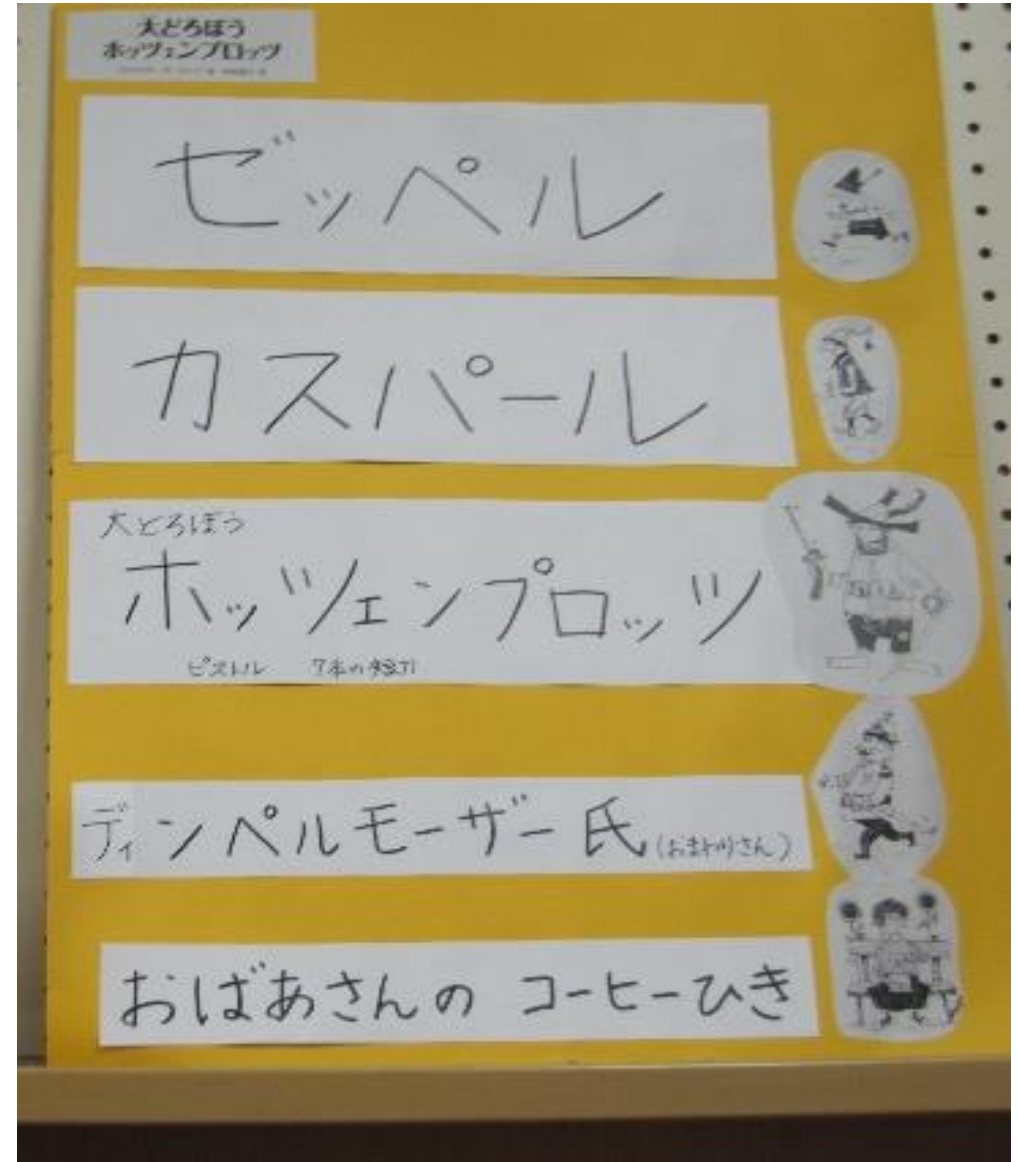 大どろぼう
ホッツェンプロッツ
ゼッペル
カスパール
大どろぼう
ホッツェンプロッツ
ピストル 7本の短刀
ディンペルモーザー氏(おまわりさん)
おばあさんの コーヒーひき